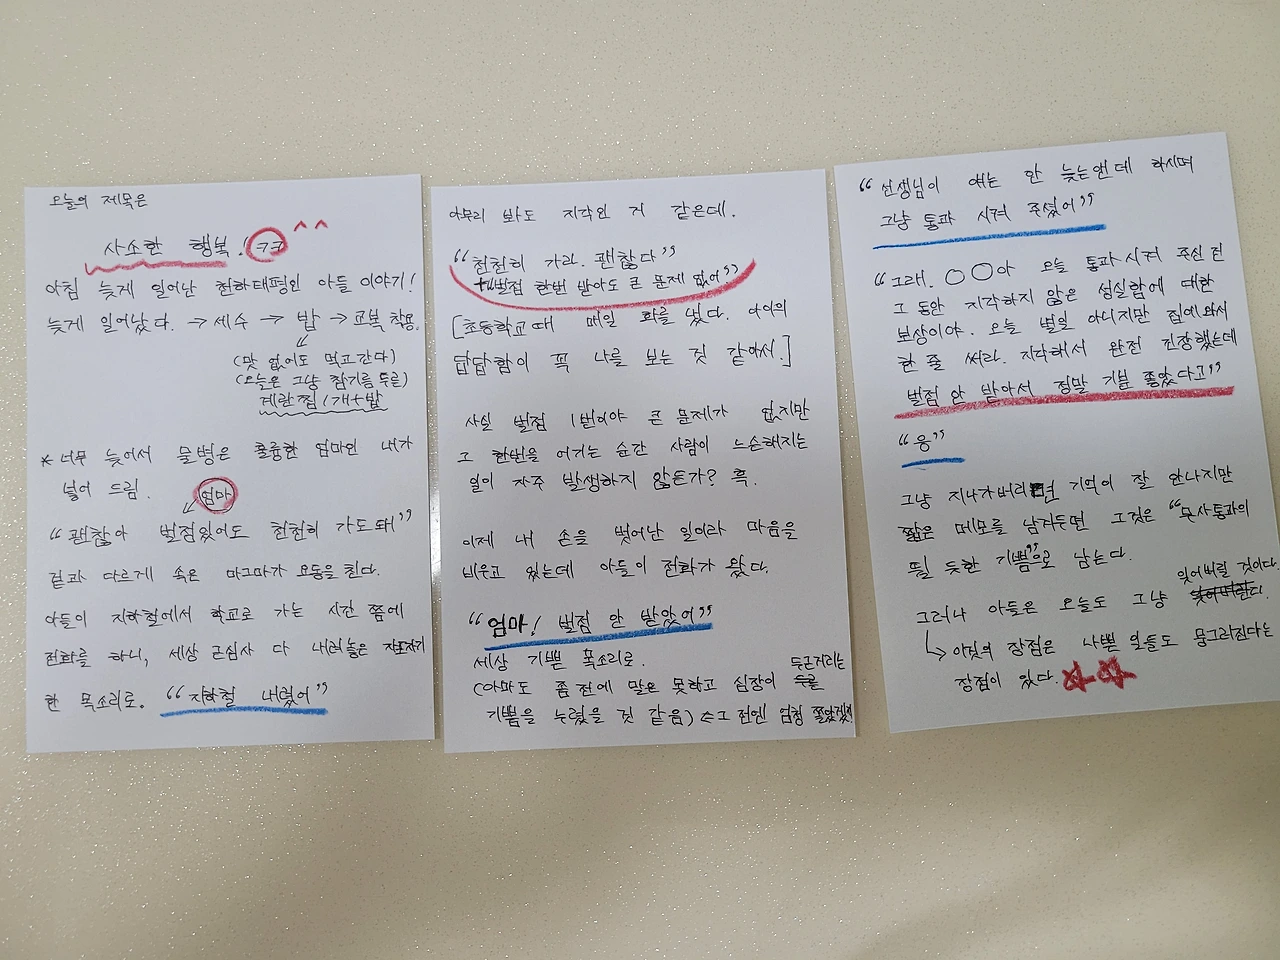 오늘의 제목은
사소한 행복. ㅋㅋ ^^
아침 늦게 일어난 천하태평인 아들 이야기!
늦게 일어났다. → 세수 → 밥 → 교복 착용.
(맛 없어도 먹고간다)
(오늘은 그냥 참기름 두른)
계란찜 1개+밥
* 너무 늦어서 물병은 훌륭한 엄마인 내가
넣어 드림.
엄마
“괜찮아 벌점있어도 천천히 가도 돼”
겉과 다르게 속은 마그마가 요동을 친다.
아들이 지하철에서 학교로 가는 시간 쯤에
전화를 하니, 세상 근심사 다 내려놓은
한 목소리로. “지하철 내렸어”
아무리 봐도 지각인 거 같은데.
“천천히 가라. 괜찮다”
+“벌점 한번 받아도 큰 문제 없어”
[초등학교 때 매일 화를 냈다. 아이의
답답함이 꼭 나를 보는 것 같아서.]
사실 벌점 1번이야 큰 문제가 없지만
그 한번을 어기는 순간 사람이 느슨해지는
일이 자주 발생하지 않든가? 흑.
이제 내 손을 벗어난 일이라 마음을
비우고 있는데 아들이 전화가 왔다.
“엄마! 벌점 안 받았어”
세상 기쁜 목소리로.
(아마도 좀 전에 말은 못하고 심장이 두근거리는
기쁨을 누렸을 것 같음) ⇐ 그 전엔 엄청 쫄았겠지
“선생님이 얘는 안 늦는앤데 하시며
그냥 통과 시켜 주셨어”
“그래. ○○아 오늘 통과시켜 주신 건
그 동안 지각하지 않은 성실함에 대한
보상이야. 오늘 별일 아니지만 집에와서
한 줄 써라. 지각해서 완전 긴장했는데
벌점 안 받아서 정말 기분 좋았다고”
“응”
그냥 지나가버리면 기억이 잘 안나지만
짧은 메모를 남겨두면 그것은 “무사통과의
뛸 듯한 기쁨”으로 남는다.
그러나 아들은 오늘도 그냥 잊어버릴 것이다.
↳ 이것의 장점은 나쁜 일들도 뭉그러진다는
장점이 있다. ☆☆